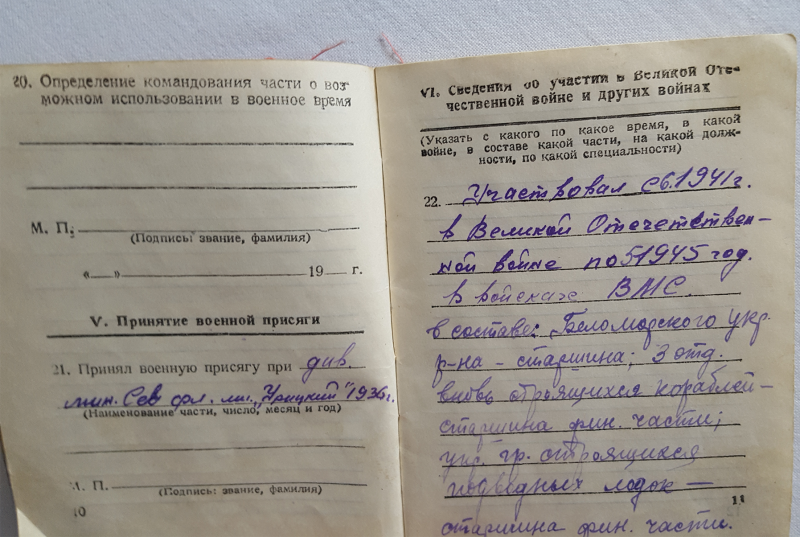 20. Определение командования части о воз-
можном использовании в военное время
М. П.
(Подпись: звание, фамилия)
«   » 19   г.
V. Принятие военной присяги
21. Принял военную присягу при див.
мин. Сев. фл. мн. „Урицкий" 1936г.
(Наименование части, число, месяц и год)
М. П.
(Подпись: звание, фамилия)
10
VI. Сведения об участии в Великой Оте-
чественной войне и других войнах
(Указать с какого по какое время, в какой
войне, в составе какой части, на какой долж-
ности, по какой специальности)
22. Участвовал с 6.1941г.
в Великой Отечествен-
ной войне по 5 1945 год.
в войсках ВМС.
в составе: Беломорского укр.
р-на - старшина; 3 отд.
вновь строящихся кораблей -
старшина фин. части;
укр. гр. строящихся
подводных лодок -
11
старшина фин. части.